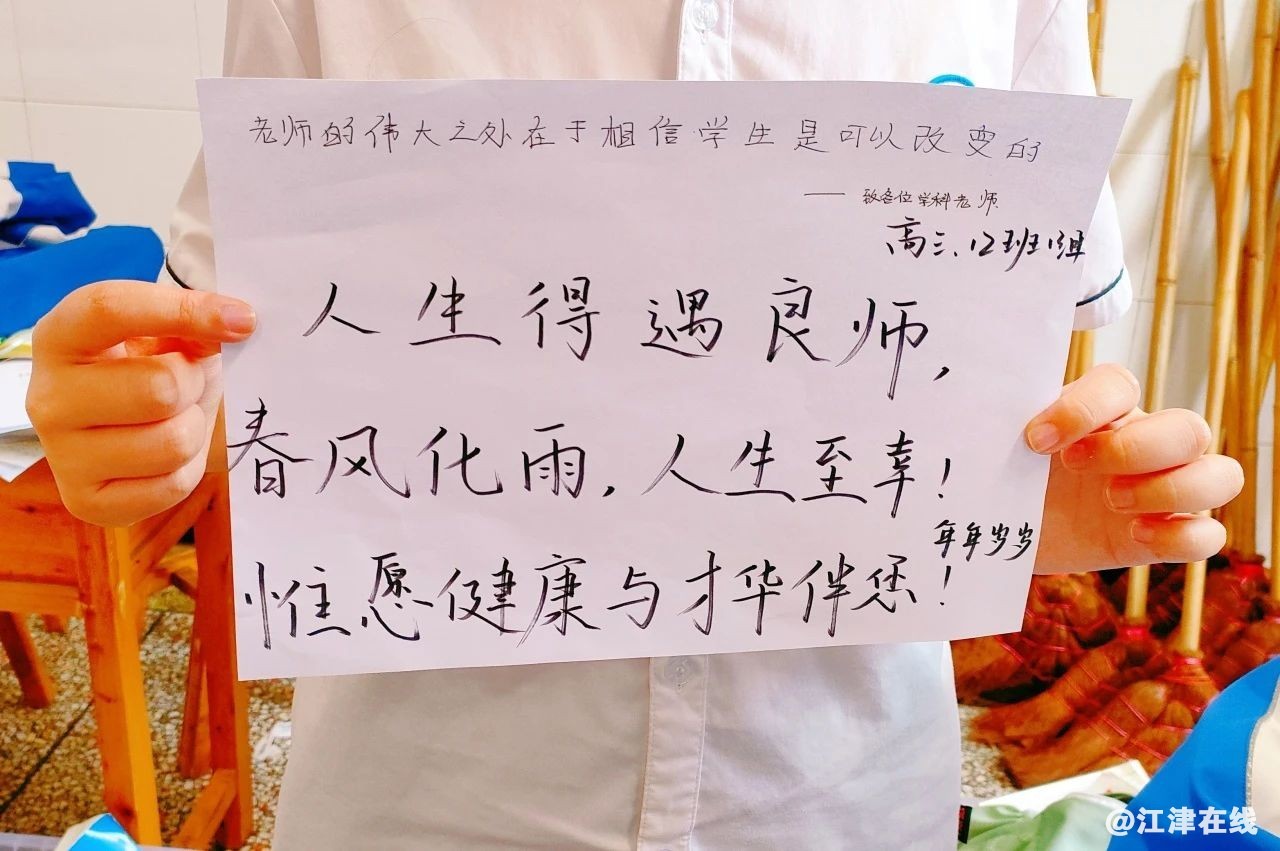 老师的伟大之处在于相信学生是可以改变的
——致各位学科老师
高三、12班13组
人生得遇良师,
春风化雨,人生至幸!
年年岁岁
惟愿健康与才华伴您!
@江津在线